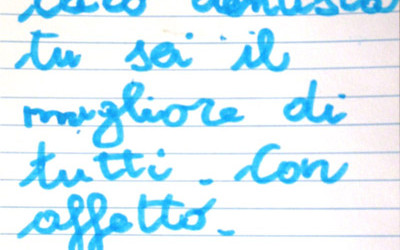 caro dentista
tu sei il
migliore di
tutti. Con
affetto.